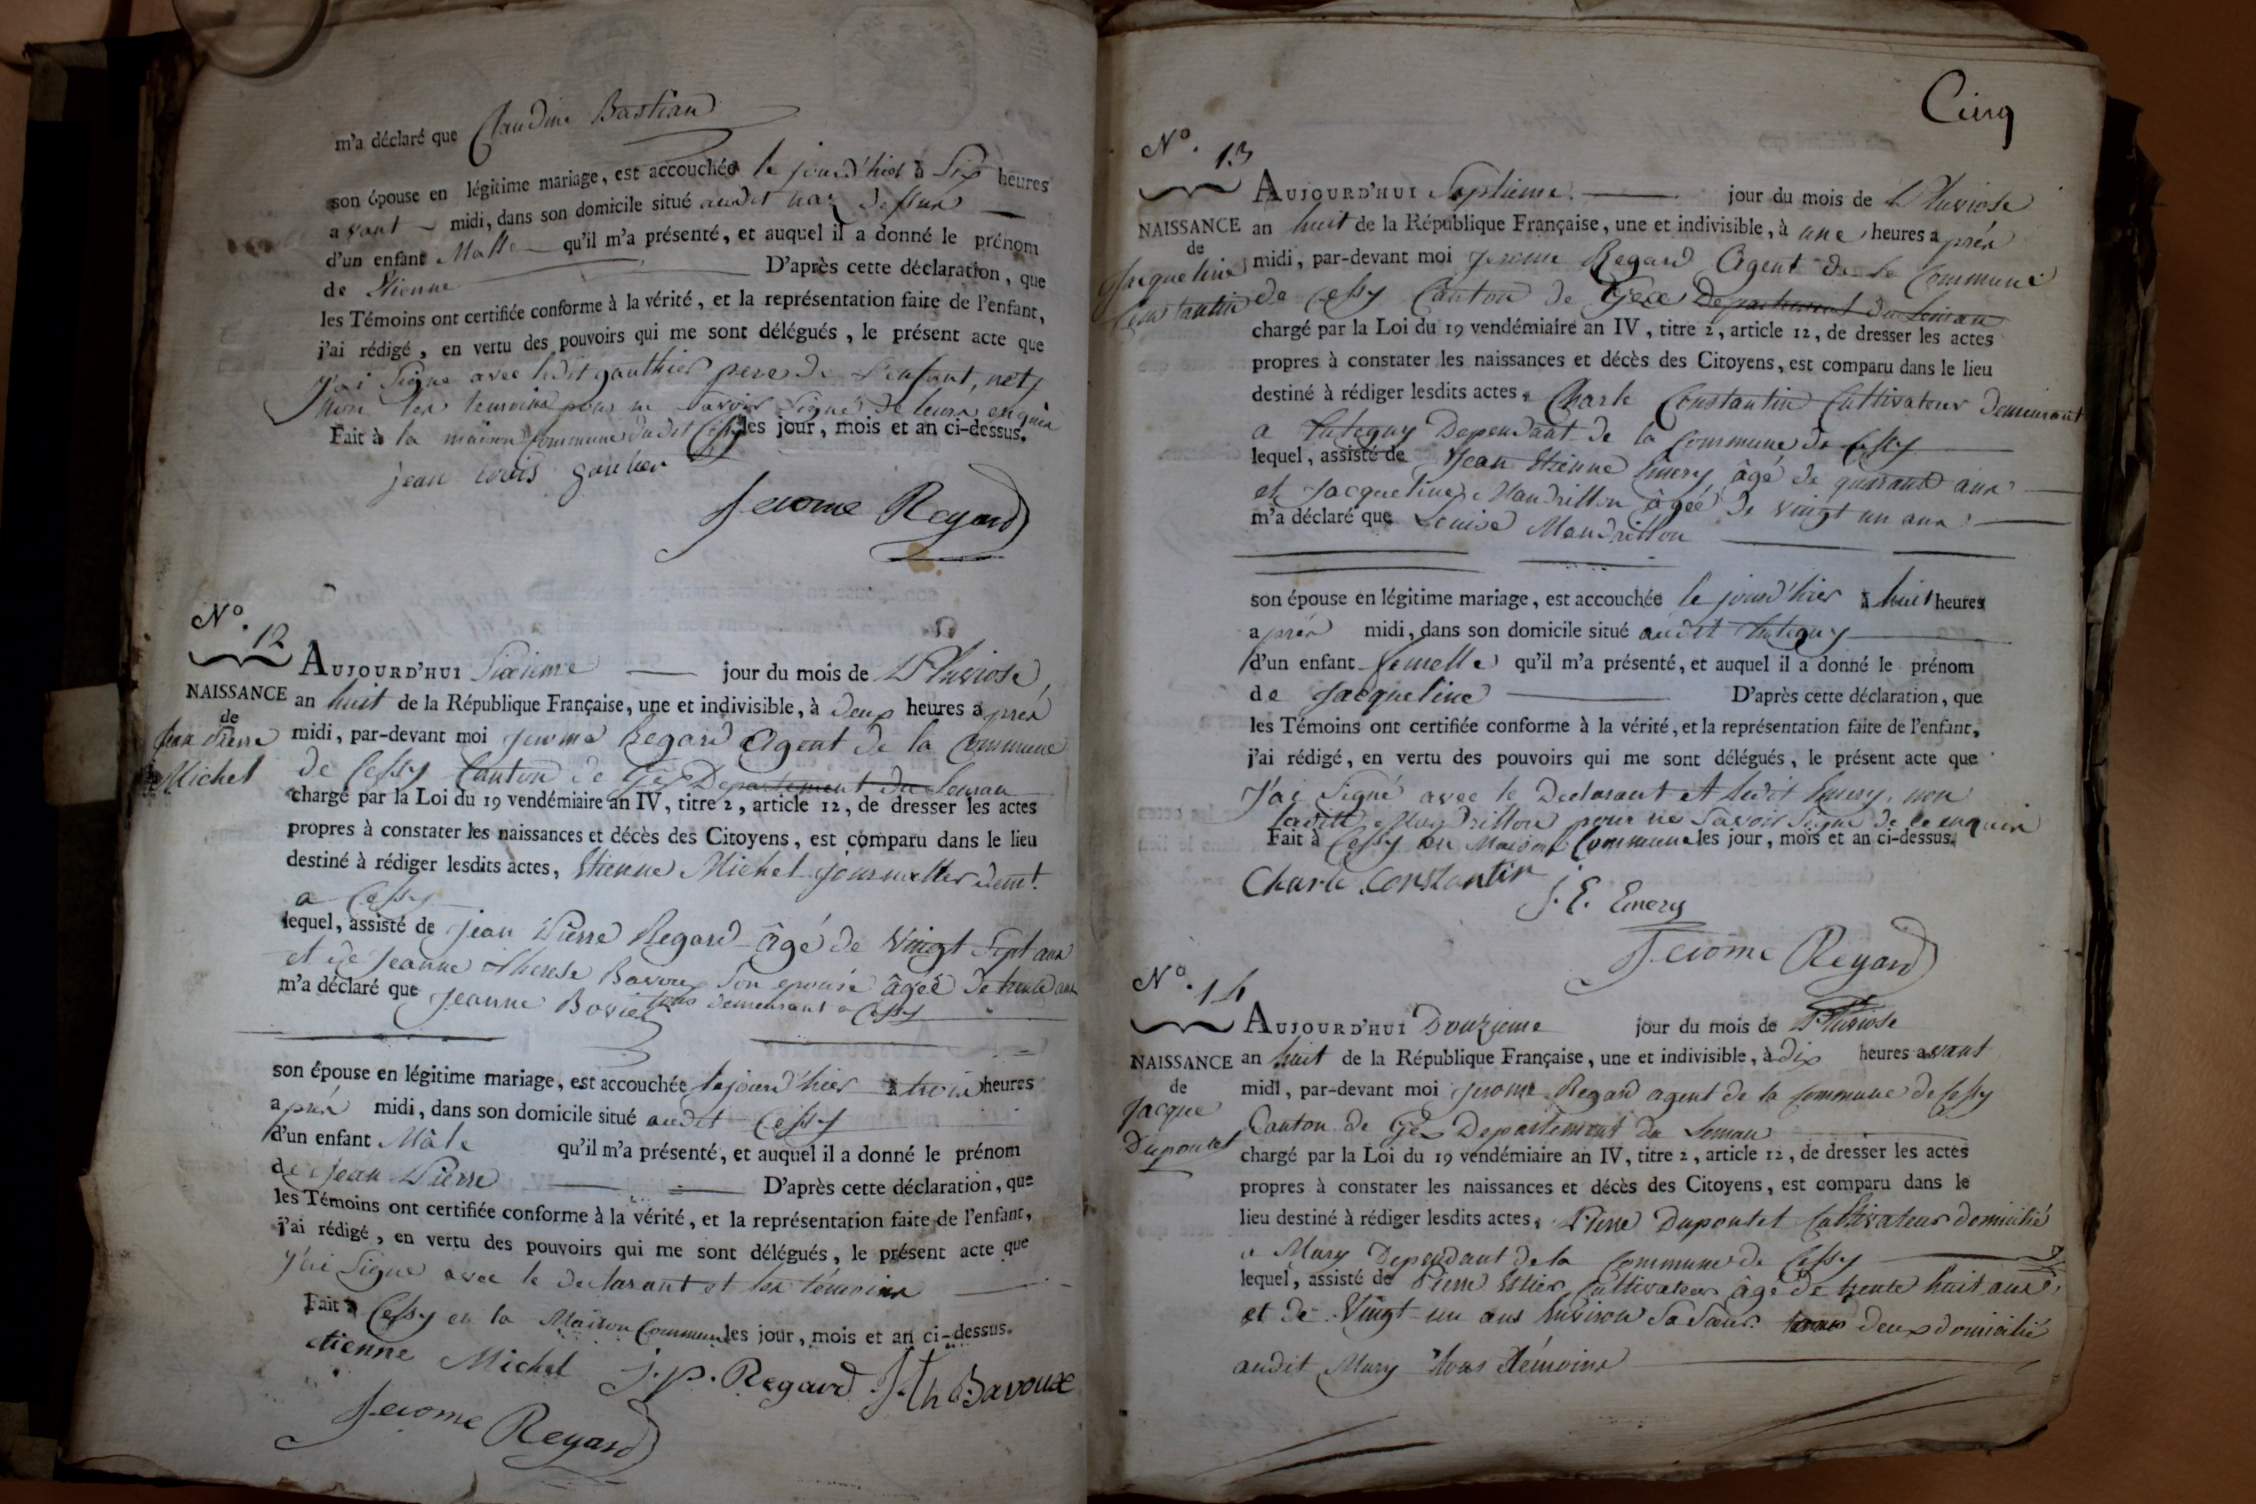 m'a déclaré que Claudine Bastian
son épouse en légitime mariage, est accouchée le jourd'hier à Six heures
avant midi, dans son domicile situé audit naz dessus
d'un enfant Malle qu'il m'a présenté, et auquel il a donné le prénom
de Etienne D'après cette déclaration, que
les Témoins ont certifiée conforme à la vérité, et la représentation faite de l'enfant,
j'ai rédigé, en vertu des pouvoirs qui me sont délégués, le présent acte que
J'ai Signé avec ledit gauthier pere de l'enfant, net
non les temoins pour ne Savoir Signé de leurs enquis
Fait à la maison Commune dudit Cessy les jour, mois et an ci-dessus.
jean louis
Jerome Regard
N°. 12
AUJOURD'HUI Sixieme jour du mois de Pluviose
NAISSANCE an huit de la République Française, une et indivisible, à deux heures après
de
Jean Pierre midi, par-devant moi Jerome Regard Agent de la Commune
Michel de Cessy Canton de Gex Departement du Leman
chargé par la Loi du 19 vendémiaire an IV, titre 2, article 12, de dresser les actes
propres à constater les naissances et décès des Citoyens, est comparu dans le lieu
destiné à rédiger lesdits actes, Etienne Michel journallier demt.
a Cessy
lequel, assisté de Jean Pierre Regard âgé de Vingt Sept ans
et de Jeanne Therese Bavoux Son epouse âgée de trente ans
tous demeurant a Cessy
m'a déclaré que Jeanne
son épouse en légitime mariage, est accouchée le jourd'hier à trois heures
après midi, dans son domicile situé audit Cessy
d'un enfant Mâle qu'il m'a présenté, et auquel il a donné le prénom
de Jean Pierre D'après cette déclaration, que
les Témoins ont certifiée conforme à la vérité, et la représentation faite de l'enfant,
j'ai rédigé, en vertu des pouvoirs qui me sont délégués, le présent acte que
J'ai Signé avec le declarant et les témoins
Fait à Cessy en la Maison Commune les jour, mois et an ci-dessus.
etienne Michel J. p. Regard J. th Bavoux
Jerome Regard
Cinq
N°. 13
AUJOURD'HUI Septieme jour du mois de Pluviose
NAISSANCE an huit de la République Française, une et indivisible, à une heures après
de
Jacqueline midi, par-devant moi Jerome Regard Agent de la Commune
Constantin de Cessy Canton de Gex Departement du Leman
chargé par la Loi du 19 vendémiaire an IV, titre 2, article 12, de dresser les actes
propres à constater les naissances et décès des Citoyens, est comparu dans le lieu
destiné à rédiger lesdits actes, Charle Constantin Cultivateur demeurant
a Dependant de la Commune de Cessy
lequel, assisté de Jean Etienne Emery âgé de quarante ans
et Jacqueline Mandrillon âgée de vingt un ans
m'a déclaré que Louise Mandrillon
son épouse en légitime mariage, est accouchée le jourd'hier à huit heures
après midi, dans son domicile situé audit
d'un enfant femelle qu'il m'a présenté, et auquel il a donné le prénom
de Jacqueline D'après cette déclaration, que
les Témoins ont certifiée conforme à la vérité, et la représentation faite de l'enfant,
j'ai rédigé, en vertu des pouvoirs qui me sont délégués, le présent acte que
J'ai Signé avec le Declarant et ledit Emery, non
ladite Mandrillon pour ne Savoir Signé de ce enquis
Fait à Cessy en Maison Commune les jour, mois et an ci-dessus.
Charle Constantin J. E. Emery
Jerome Regard
N°. 14
AUJOURD'HUI Douzieme jour du mois de Pluviose
NAISSANCE an huit de la République Française, une et indivisible, à dix heures avant
de midi, par-devant moi Jerome Regard agent de la Commune de Cessy
Jacque Canton de Gex Departement du Leman
Dupontet chargé par la Loi du 19 vendémiaire an IV, titre 2, article 12, de dresser les actes
propres à constater les naissances et décès des Citoyens, est comparu dans le
lieu destiné à rédiger lesdits actes, Pierre Dupontet Cultivateur domicilié
a Mury Dependant de la Commune de Cessy
lequel, assisté de Pierre Cultivateur âgé de trente huit ans,
et de Vingt un ans Environ Sa Sœur deux domicilié
audit Mury tous témoins